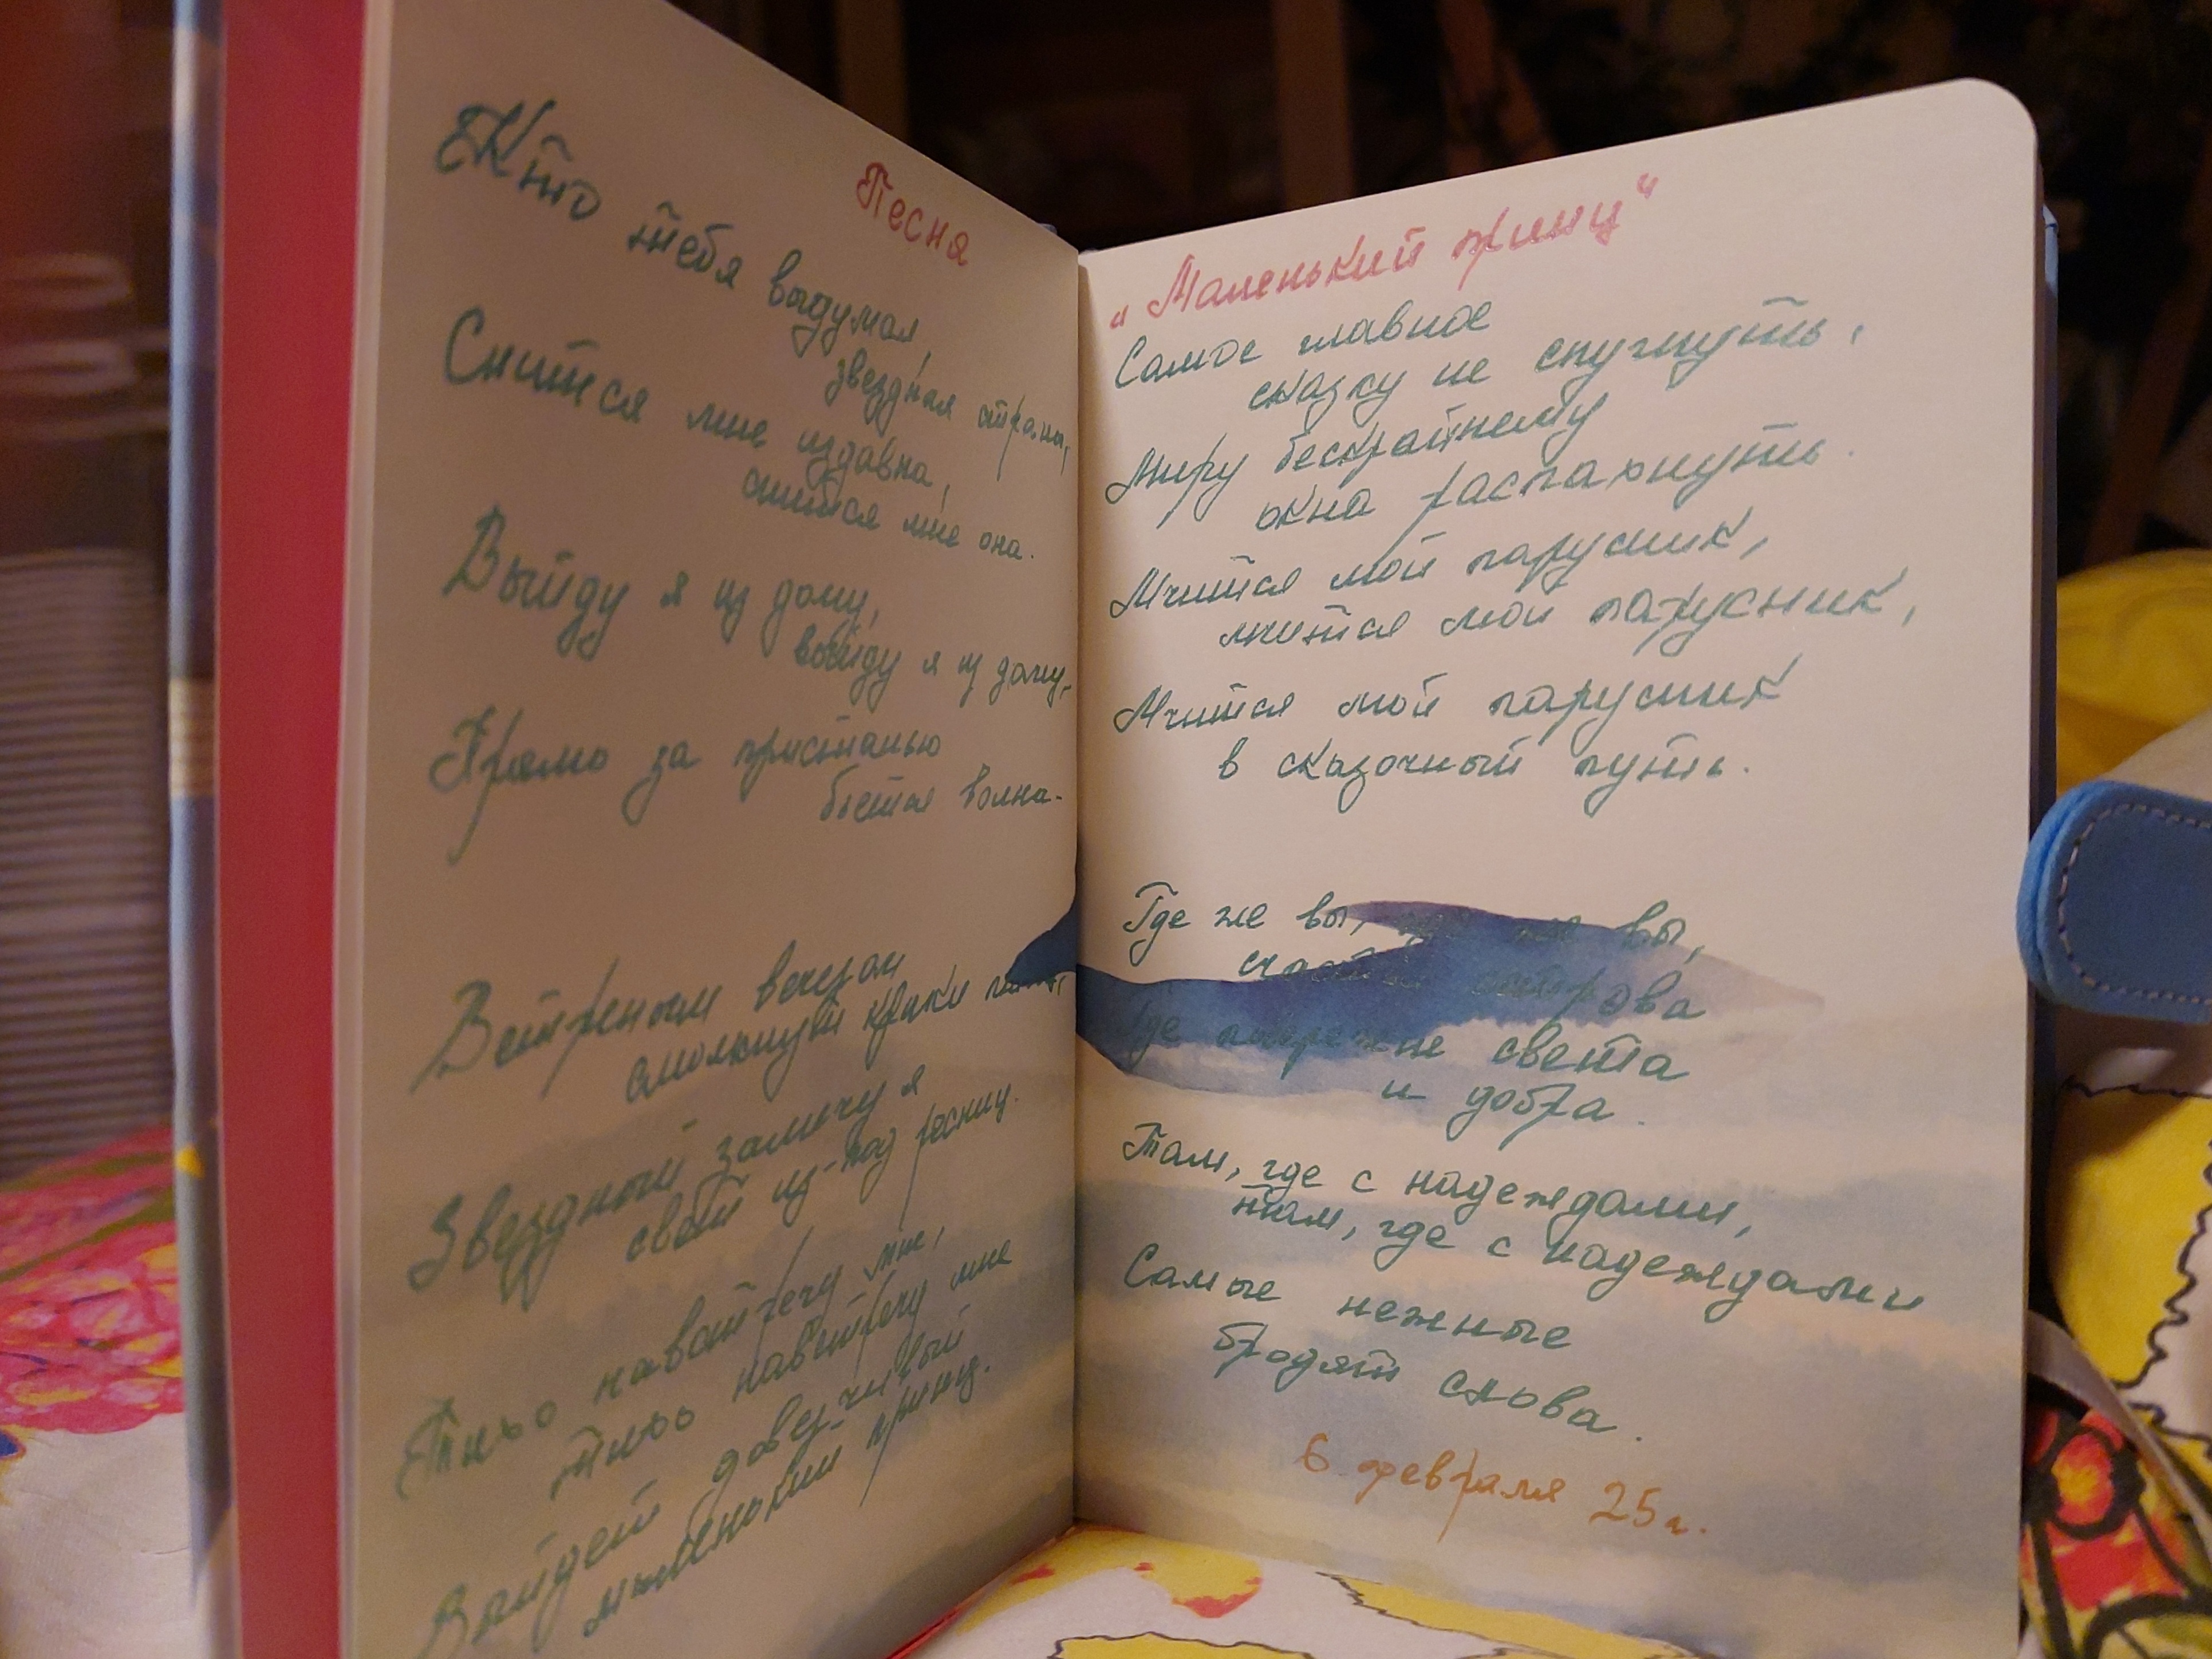 Песня
Кто тебя выдумал,
звездная страна,
Снится мне издавна,
снится мне она.
Выйду я из дому,
выйду я из дому,
Прямо за пристанью
бьется волна.
Ветреным вечером
смолкнут крики
Звездный замечу я
свет из-под ресниц.
Тихо навстречу мне,
тихо навстречу мне
Выйдет довер-чивый
маленький принц.
„Маленький принц“
Самое главное
сказку не спугнуть,
Миру бескрайнему
окна распахнуть.
Мчится мой парусник,
мчится мой парусник,
Мчится мой парусник
в сказочный путь.
Где же вы, где же вы,
счастья острова
Где побережье света
и добра.
Там, где с надеждами,
там, где с надеждами
Самые нежные
бродят слова.
6 февраля 25г.